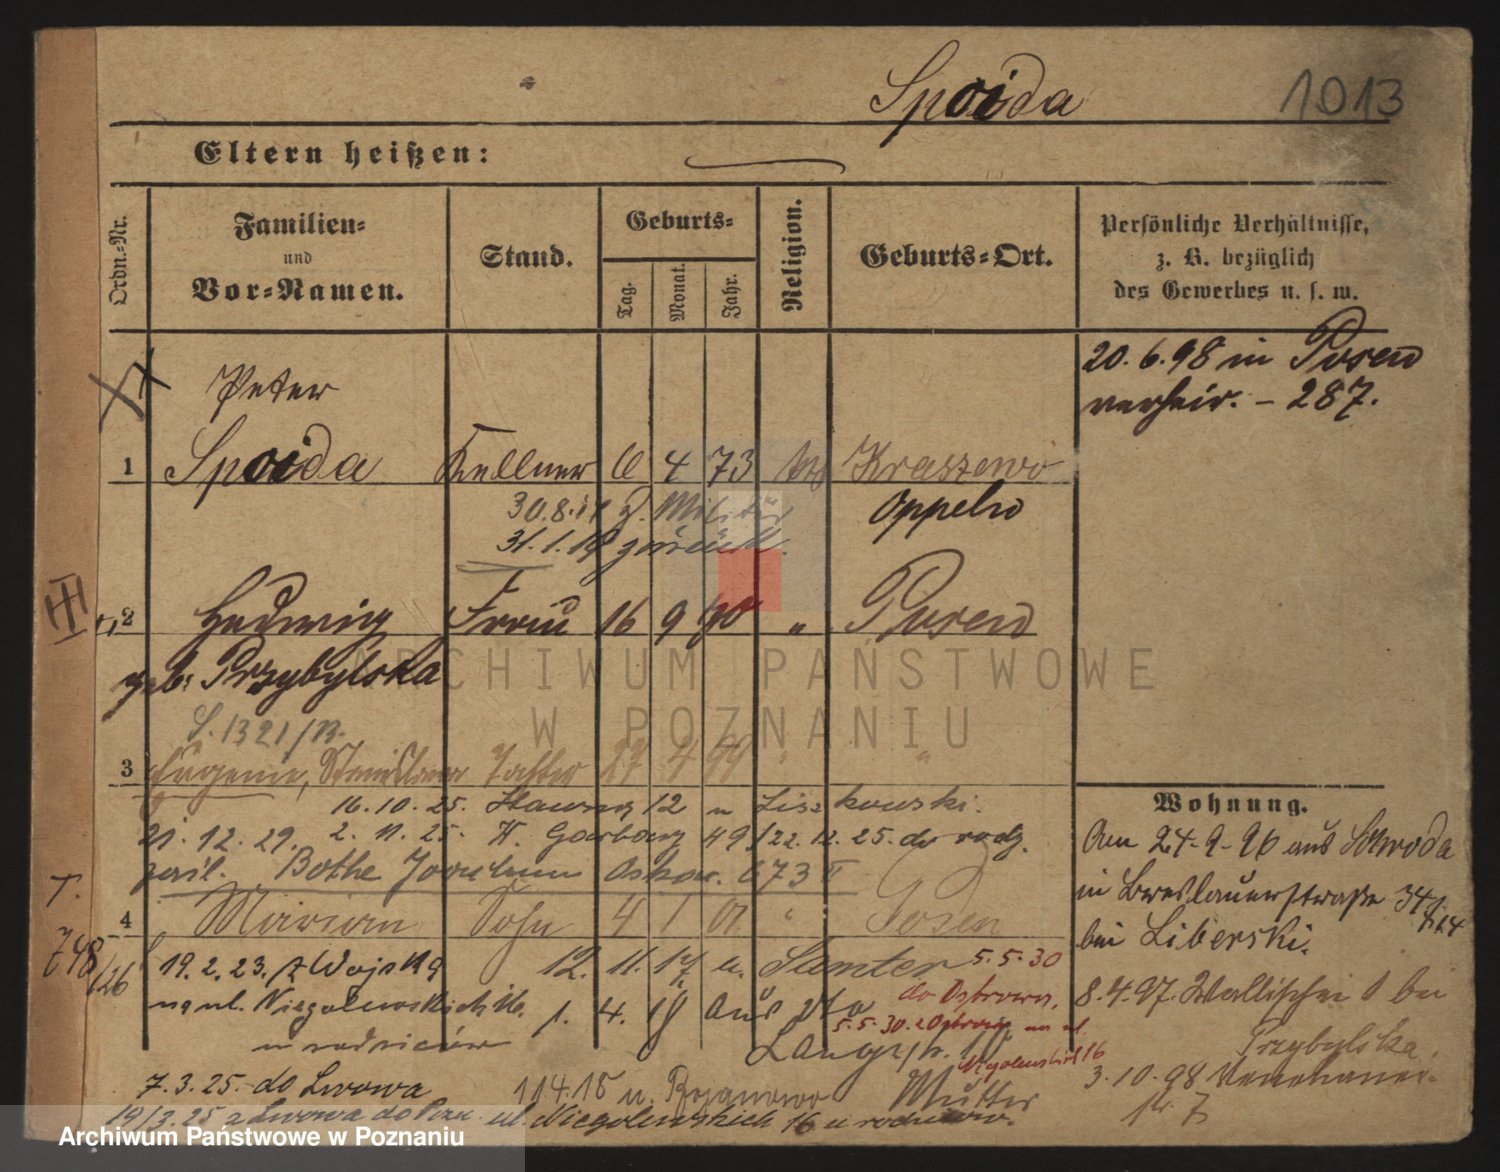 Spoida 1013
Eltern heißen:
Ordn.-Nr.
Familien-
und
Vor-Namen.
Stand.
Geburts-
Tag.
Monat.
Jahr.
Religion.
Geburts-Ort.
Persönliche Verhältnisse,
z. B. bezüglich
des Gewerbes u. s. w.
20. 6. 98 in Posen
verheir. - 287.
Peter
1 Spoida Kellner 6 4 73 Kraszewo
30.8. z. Militär Oppeln
31.1.18 zurück.
III
2 Hedwig Frau 16 9 70 " Posen
geb. Przybylska
S. 1321/
3 Eugenie, Stanislawa Tochter 27 4 99 " "
16. 10. 25. 12 u Liszkowski.
21. 12. 29. 2. 11. 25. W. Garbary 49 22. 12. 25. do rodz.
Bothe Oskar. 673 II
T. 748/26
4 Marian Sohn 4 1 01 " Posen
19. 2. 23. z Wojska 12. 11. 17 u. Samter 5.5.30
na ul. Niegolewskich 16. 1. 4. 18 aus do Ostrowa,
u rodziców 5.5.30. z Ostrowa na ul.
Niegolewskich 16
7. 3. 25. do Lwowa 11.4.18 u. Bojanowo Mutter
19/3.25 z Lwowa do Pozn. ul. Niegolewskich 16 u rodziców.
Wohnung.
Am 24-9-96 aus Schroda
in Breslauerstraße 34
bei Liberski.
8. 4. 97. Wallischei bei
Przybylska.
3. 10. 98
7
ARCHIWUM PAŃSTWOWE
W POZNANIU
Archiwum Państwowe w Poznaniu